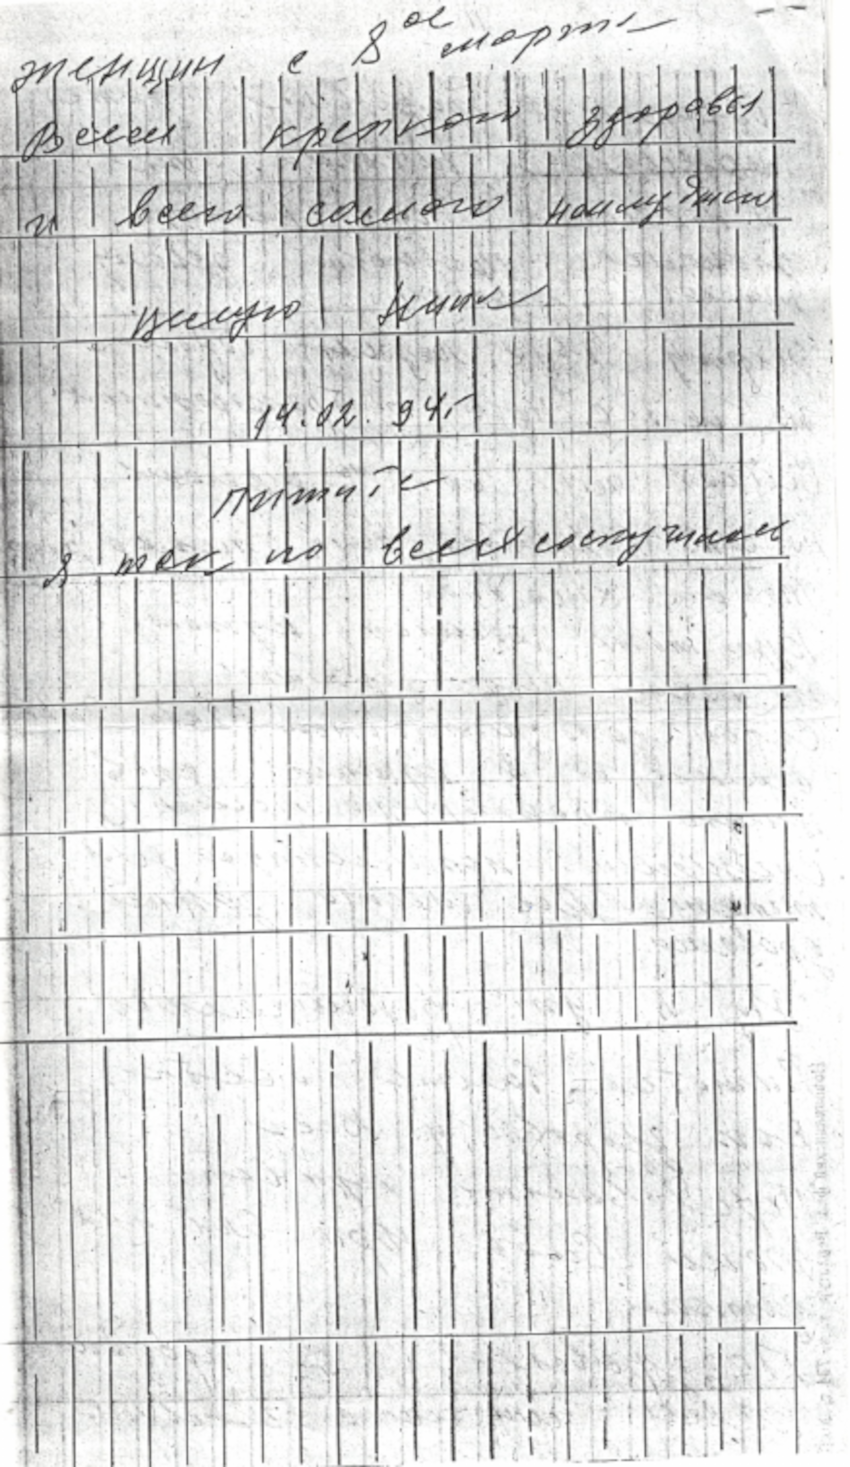 женщин с 8ое марта
Всем крепкого здоровья
и всего самого наилучшего
Целую Нина
14.02.94г
пишите
я так по всем соскучилась